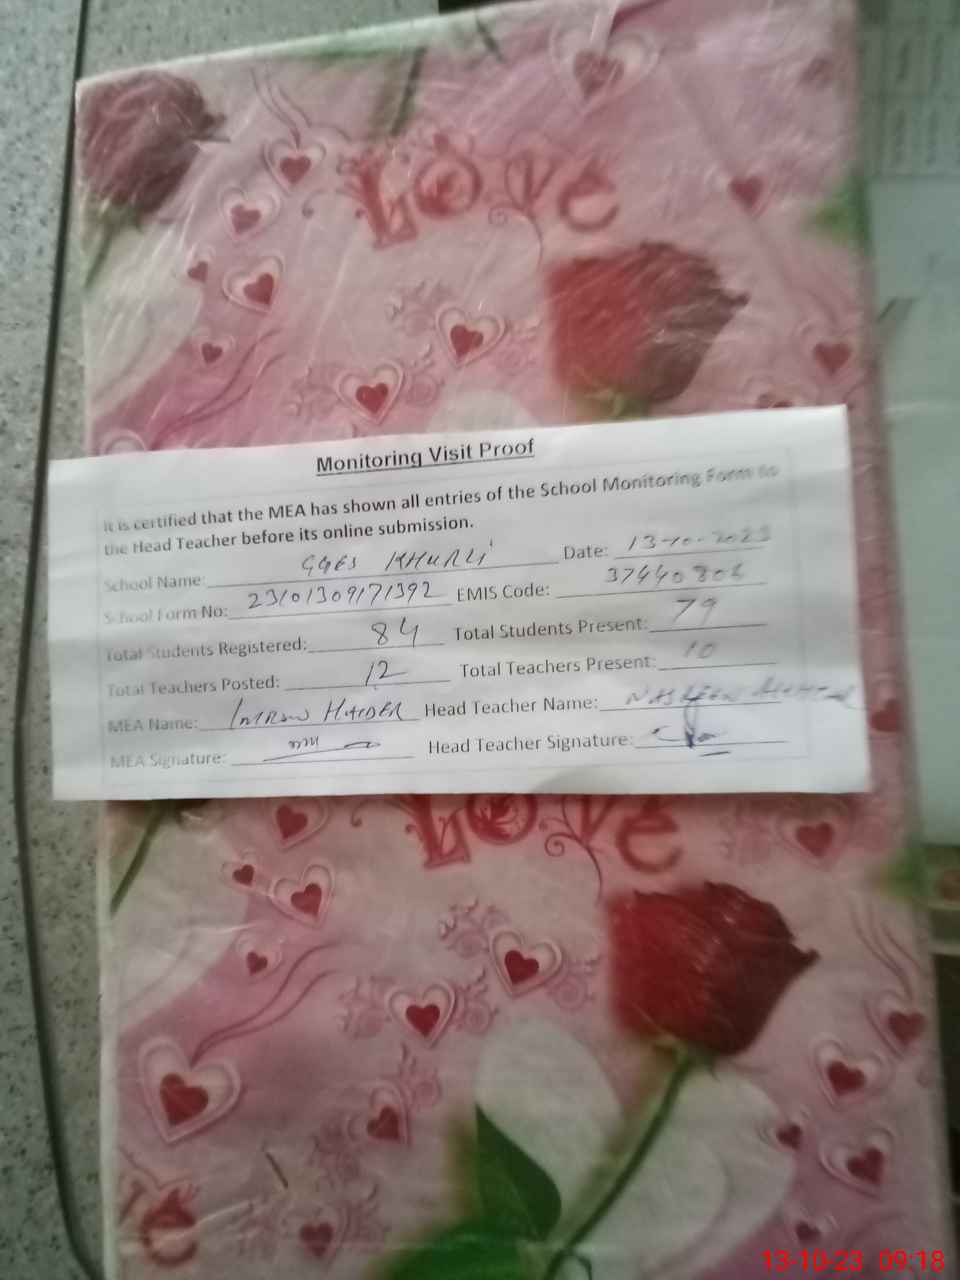 Love
Monitoring Visit Proof
It is certified that the MEA has shown all entries of the School Monitoring Form to
the Head Teacher before its online submission.
School Name: GGES KHURLI Date: 13-10-2023
School Form No: 23101309171392 EMIS Code: 37440806
Total Students Registered: 84 Total Students Present: 79
Total Teachers Posted: 12 Total Teachers Present: 10
MEA Name: IMRAN HAIDER Head Teacher Name: NASREEN
MEA Signature: Head Teacher Signature:
Love
13-10-23 09:18